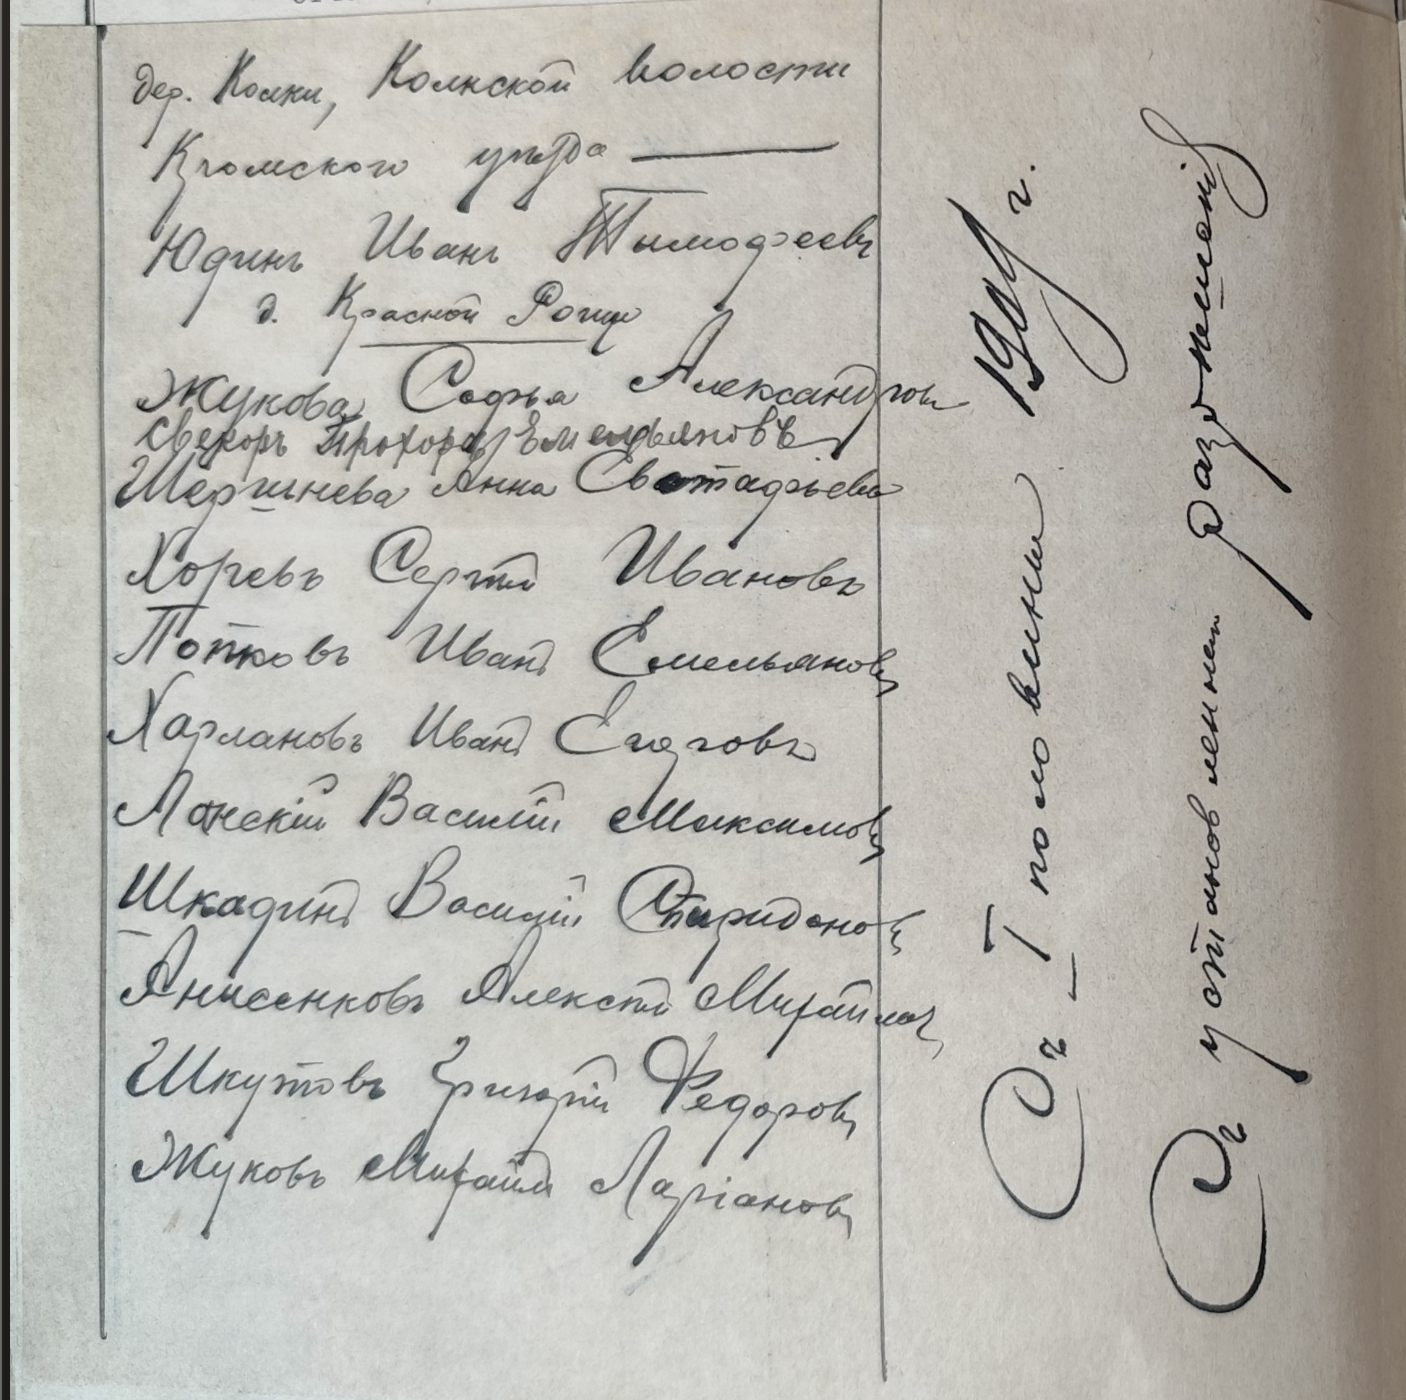 дер. Колки, Колкской волости
Кромского уѣзда
Юдинъ Иванъ Тимофеевъ
д. Красной Рощи
Жукова Софья Александров
свекоръ Прохоръ Емельяновъ
Шершнева Анна Евстафьева
Хоревъ Сергѣй Ивановъ
Попковъ Иванъ Емельяновъ
Харлановъ Иванъ Егоровъ
Лонскій Василій Максимовъ
Шкадинъ Василій Спиридоновъ
Анисенковъ Алексѣй Михайловъ
Шкутовъ Григорій Федоровъ
Жуковъ Михаилъ Ларіоновъ
Съ I половины 1909 г.
Съ установлением